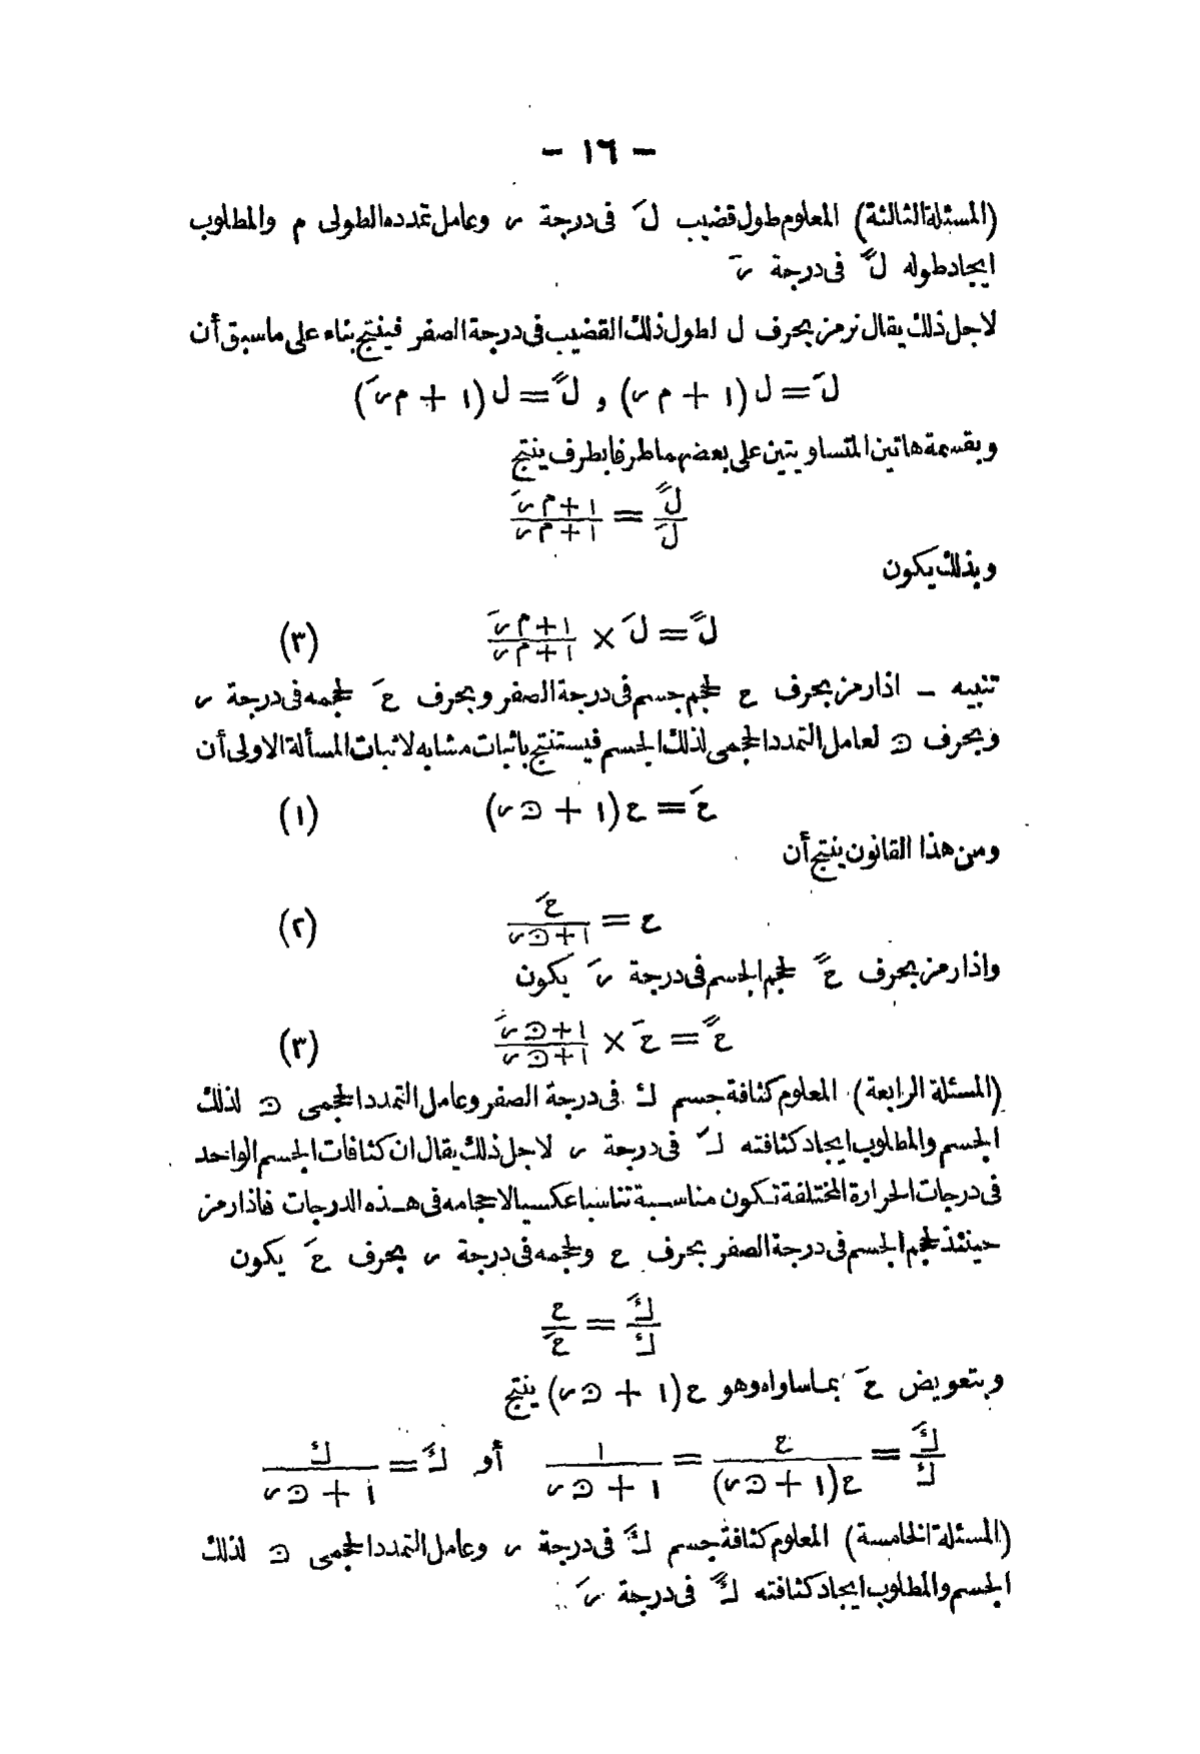 — ١٦ —
(المسئلة الثالثة) المعلوم طول قضيب لَ فى درجة ﮩ وعامل تمدده الطولى م والمطلوب
ايجاد طوله لً فى درجة ﮩَ
لاجل ذلك يقال نرمز بحرف ل لطول ذلك القضيب فى درجة الصفر فينتج بناء على ماسبق أن
لَ = ل (١ + م ﮩ) و لً = ل (١ + م ﮩَ)
وبقسمة هاتين المتساويتين على بعضهما طرفا بطرف ينتج
لً / لَ = (١ + م ﮩَ) / (١ + م ﮩ)
وبذلك يكون
لً = لَ × (١ + م ﮩَ) / (١ + م ﮩ) (٣)
تنبيه — اذا رمز بحرف ح لحجم جسم فى درجة الصفر وبحرف حَ لحجمه فى درجة ﮩ
وبحرف ﮝ لعامل التمدد الحجمى لذلك الجسم فيستنتج باثبات مشابه لاثبات المسألة الاولى أن
حَ = ح (١ + ﮝ ﮩ) (١)
ومن هذا القانون ينتج أن
ح = حَ / (١ + ﮝ ﮩ) (٢)
واذا رمز بحرف حً لحجم الجسم فى درجة ﮩَ يكون
حً = حَ × (١ + ﮝ ﮩَ) / (١ + ﮝ ﮩ) (٣)
(المسئلة الرابعة) المعلوم كثافة جسم ك فى درجة الصفر وعامل التمدد الحجمى ﮝ لذلك
الجسم والمطلوب ايجاد كثافته كَ فى درجة ﮩ لاجل ذلك يقال ان كثافات الجسم الواحد
فى درجات الحرارة المختلفة تكون مناسبة تناسبا عكسيا لاحجامه فى هذه الدرجات فاذا رمز
حينئذ لحجم الجسم فى درجة الصفر بحرف ح ولحجمه فى درجة ﮩ بحرف حَ يكون
كَ / ك = ح / حَ
وبتعويض حَ بما ساواه وهو ح (١ + ﮝ ﮩ) ينتج
كَ / ك = ح / ح (١ + ﮝ ﮩ) = ١ / (١ + ﮝ ﮩ) أو كَ = ك / (١ + ﮝ ﮩ)
(المسئلة الخامسة) المعلوم كثافة جسم كَ فى درجة ﮩ وعامل التمدد الحجمى ﮝ لذلك
الجسم والمطلوب ايجاد كثافته كً فى درجة ﮩَ